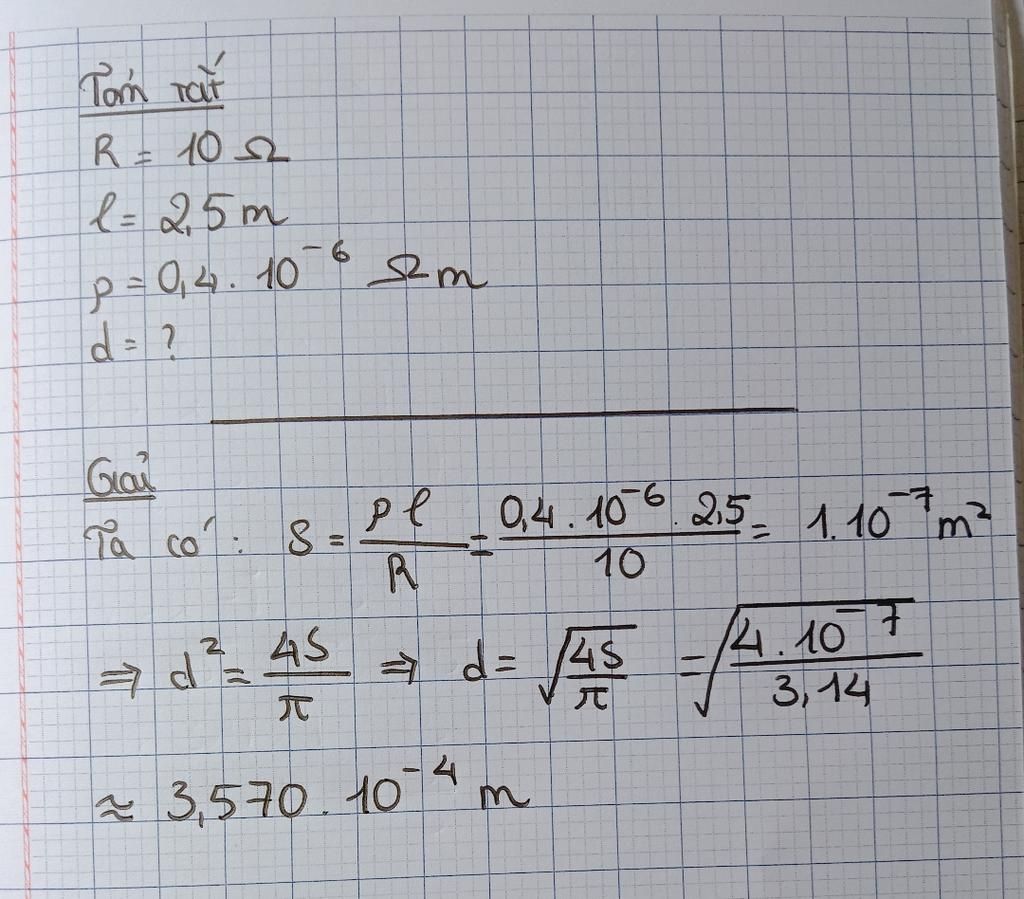 Tóm tắt
R = 10 Ω
l = 2,5 m
ρ = 0,4 . 10⁻⁶ Ωm
d = ?
Giải
Ta có : S = ρl / R = 0,4 . 10⁻⁶ . 2,5 / 10 = 1.10⁻⁷ m²
⇒ d² = 4S / π ⇒ d = √(4S / π) = √(4 . 10⁻⁷ / 3,14)
≈ 3,570 . 10⁻⁴ m